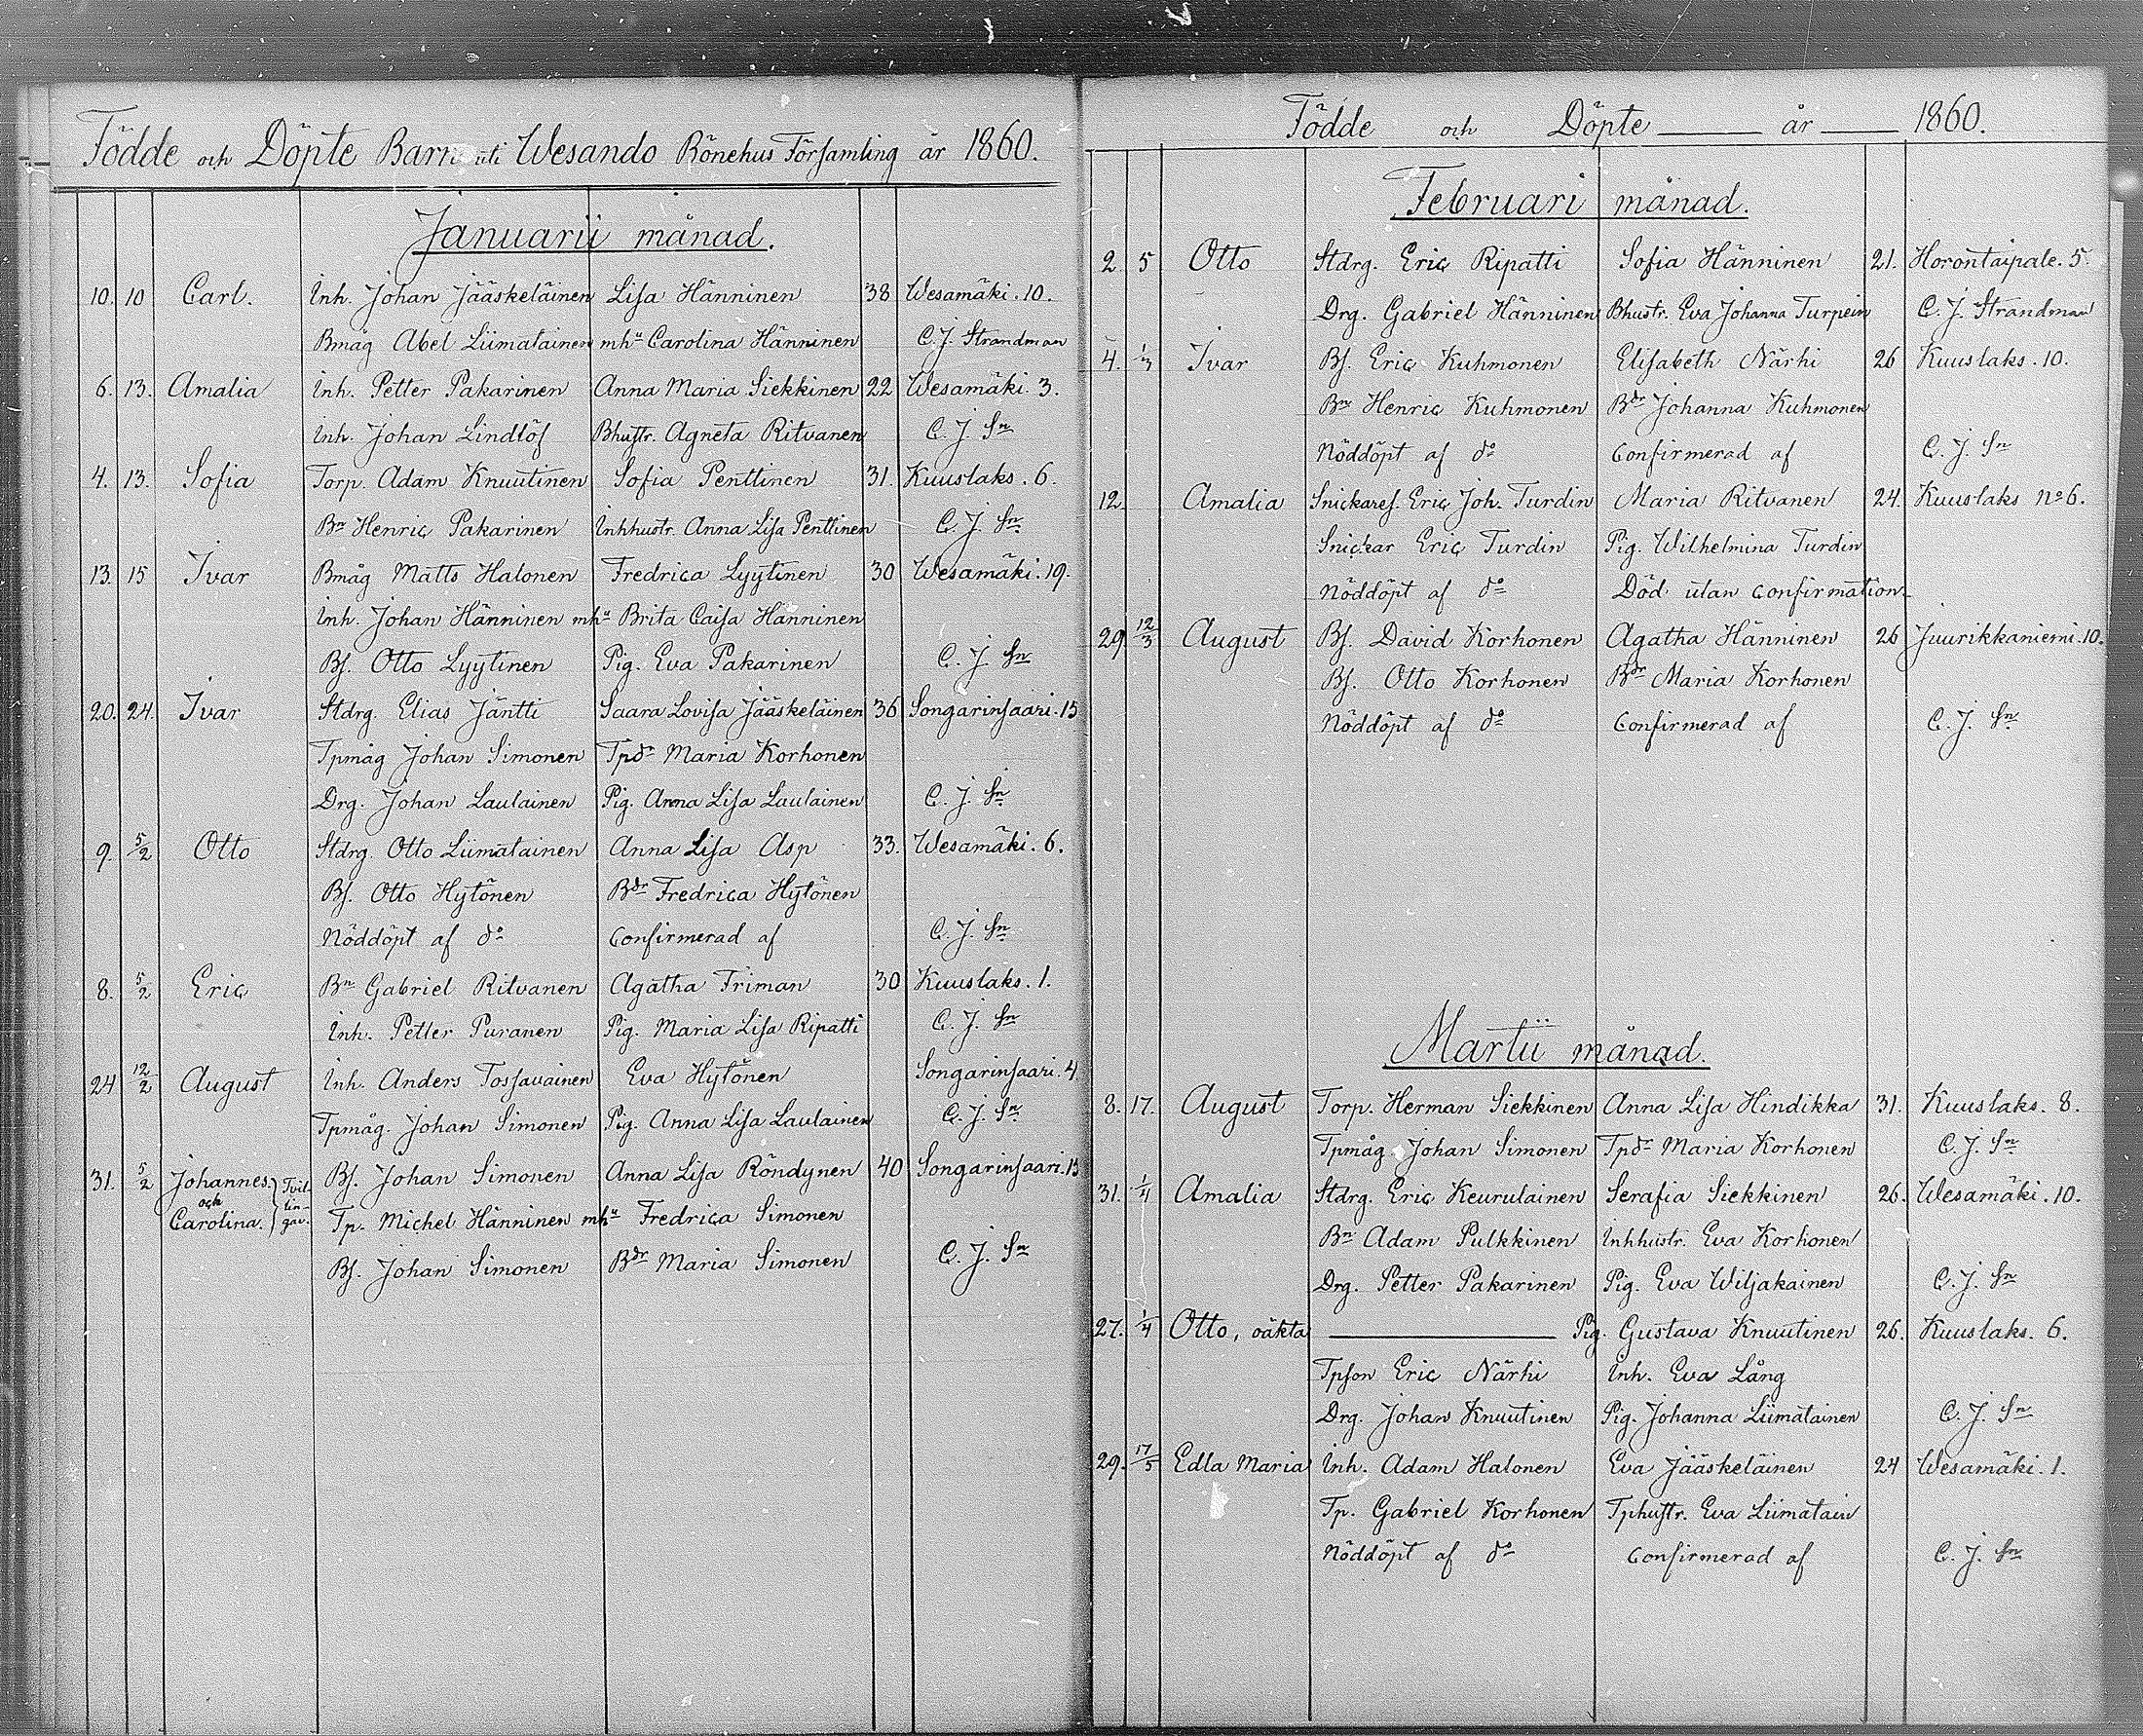 Födde och Döpte Barn uti Wesando Bönehus Församling år 1860.
Januarii månad.
10. 10 Carl. Inh. Johan Jääskeläinen Lisa Hänninen 38 Wesamäki. 10.
Bmåg Abel Liimatainen mhu Carolina Hänninen C. J. Strandman
6. 13. Amalia Inh. Petter Pakarinen Anna Maria Siekkinen 22 Wesamäki. 3.
Inh. Johan Lindlöf Bhustr. Agneta Ritvanen C. J. Sn
4. 13. Sofia Torp. Adam Knuutinen Sofia Penttinen 31. Kuuslaks. 6.
Bn Henric Pakarinen Inhhustr. Anna Lisa Penttinen C. J. Sn
13. 15 Ivar Bmåg Matts Halonen Fredrica Lyytinen 30 Wesamäki. 19.
Inh. Johan Hänninen mhu Brita Caisa Hänninen
Bs. Otto Lyytinen Pig. Eva Pakarinen C. J. Sn
20. 24. Ivar Stdrg. Elias Jäntti Saara Lovisa Jääskeläinen 36 Songarinsaari. 15
Tpmåg Johan Simonen Tpdr Maria Korhonen
Drg. Johan Laulainen Pig. Anna Lisa Laulainen C. J. Sn
9. 5/2 Otto Stdrg. Otto Liimatainen Anna Lisa Asp 33. Wesamäki. 6.
Bs. Otto Hytönen Bdr Fredrica Hytönen
Nöddöpt af do Confirmerad af C. J. Sn
8. 5/2 Eric Bn Gabriel Ritvanen Agatha Friman 30 Kuuslaks. 1.
Inh. Petter Puranen Pig. Maria Lisa Ripatti C. J. Sn
24 12/2 August Inh. Anders Tossavainen Eva Hytönen Songarinsaari. 4.
Tpmåg. Johan Simonen Pig. Anna Lisa Laulainen C. J. Sn
31. 5/2 Johannes. och Carolina. Tvillingar. Bs. Johan Simonen Anna Lisa Röndynen 40 Songarinsaari. 15
Tp. Michel Hänninen mhu Fredrica Simonen
Bs. Johan Simonen Bdr Maria Simonen C. J. Sn
Födde och Döpte år 1860.
Februari månad.
2. 5 Otto Stdrg. Eric Ripatti Sofia Hänninen 21. Horontaipale. 5.
Drg. Gabriel Hänninen Bhustr. Eva Johanna Turpein C. J. Strandman
4. 1/3 Ivar Bs. Eric Kuhmonen Elisabeth Närhi 26 Kuuslaks. 10.
Bn Henric Kuhmonen Bdr Johanna Kuhmonen
Nöddöpt af do Confirmerad af C. J. Sn
12. Amalia Snickares. Eric Joh. Turdin Maria Ritvanen 24. Kuuslaks no 6.
Snickar Eric Turdin Pig. Wilhelmina Turdin
Nöddöpt af do Död utan confirmation.
29. 12/3 August Bs. David Korhonen Agatha Hänninen 26 Juurikkaniemi. 10.
Bs. Otto Korhonen Bdr Maria Korhonen
Nöddöpt af do Confirmerad af C. J. Sn
Martii månad.
8. 17. August Torp. Herman Siekkinen Anna Lisa Hindikka 31. Kuuslaks. 8.
Tpmåg Johan Simonen Tpdr Maria Korhonen C. J. Sn
31. 1/4 Amalia Stdrg. Eric Keurulainen Serafia Siekkinen 26. Wesamäki. 10.
Bn Adam Pulkkinen Inhhustr. Eva Korhonen
Drg. Petter Pakarinen Pig. Eva Wiljakainen C. J. Sn
27. 1/4 Otto, oäkta Pig. Gustava Knuutinen 26. Kuuslaks. 6.
Tpson Eric Närhi Inh. Eva Lång
Drg. Johan Knuutinen Pig. Johanna Liimatainen C. J. Sn
29. 17/5 Edla Maria Inh. Adam Halonen Eva Jääskeläinen 24 Wesamäki. 1.
Tp. Gabriel Korhonen Tphustr. Eva Liimatain
Nöddöpt af do Confirmerad af C. J. Sn